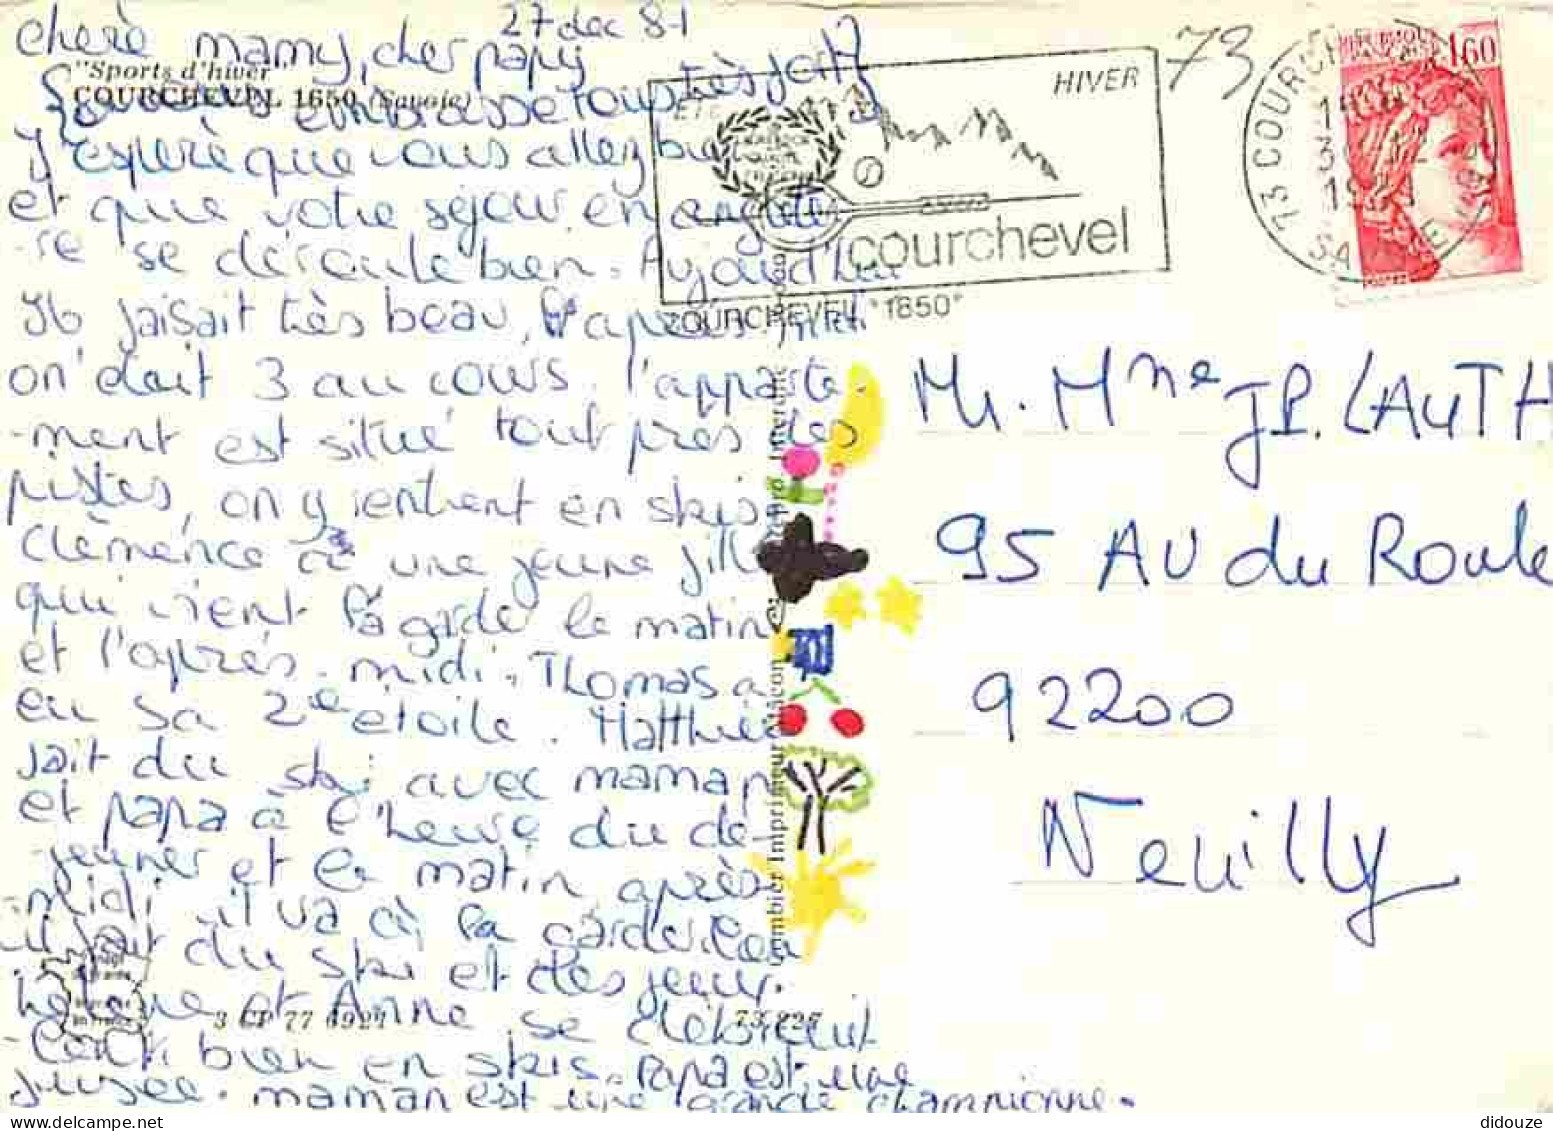 27 dec 81
chère mamy, cher papy
"Sports d'hiver"
COURCHEVEL 1650 (Savoie)
embrasse tous très fort
J'espère que vous allez bien
et que votre séjour en angle
-re se déroule bien. Aujourd'hui
Il faisait très beau, l'après midi
on était 3 au cours. l'apparte-
-ment est situé tout près des
pistes, on y rentrent en skis
Clémence a une jeune fille
qui vient la garde le matin
et l'après-midi. Thomas a
eu sa 2e étoile. Matthieu
fait du ski avec maman
et papa à l'heure du dé-
-jeuner et le matin, après-
-midi il va à la garderie ou
il fait du ski et des jeux.
helene et Anne se debrouil
-lent bien en skis. Papa est une
fusée. maman est une grande championne.
3 CP 77 6921
73 227
Combier Imprimeur Mâcon
Interdite
HIVER
courchevel
COURCHEVEL "1850"
73
73 COURCHEVEL
1981
SAVOIE
1,60
POSTES
Mr. Mme J.P. LAUTH
95 AV du Roule
92200
Neuilly
didouze